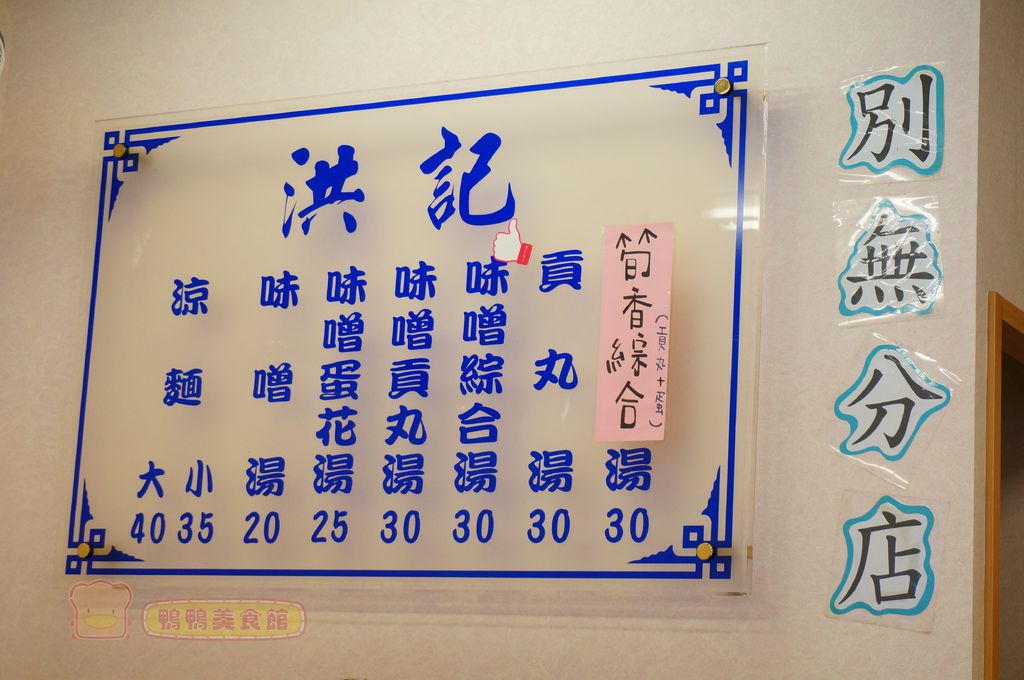 洪記
涼麵 大40 小35
味噌湯20
味噌蛋花湯25
味噌貢丸湯30
味噌綜合湯30
貢丸湯30
筍香綜合(貢丸+蛋)湯30
別無分店
鴨鴨美食館